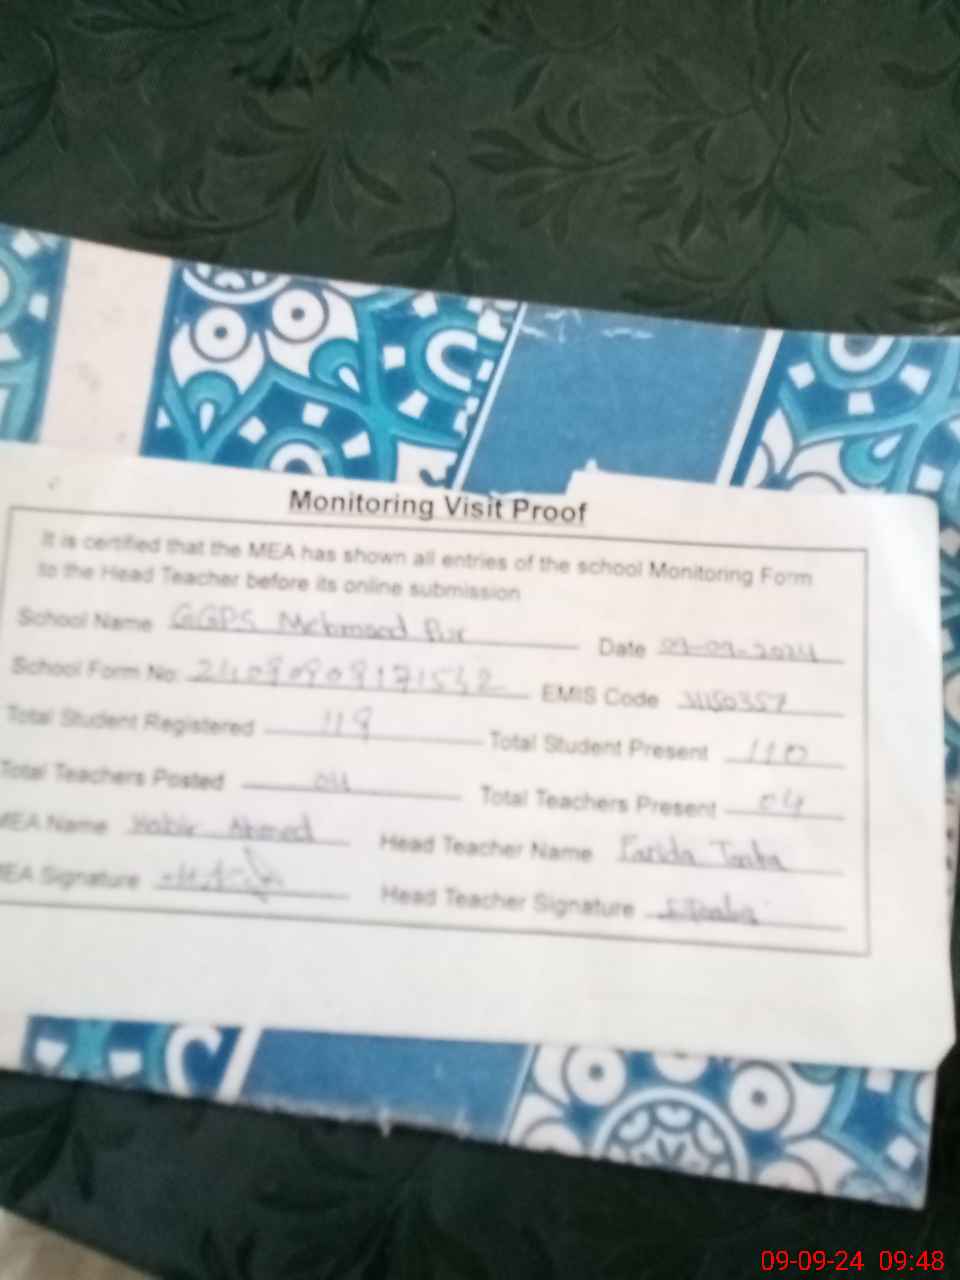 Monitoring Visit Proof
It is certified that the MEA has shown all entries of the school Monitoring Form
to the Head Teacher before its online submission
School Name GGPS Mehmood Pur Date 09-09-2024
School Form No: EMIS Code 31150357
Total Student Registered 119 Total Student Present 110
Total Teachers Posted 04 Total Teachers Present 04
MEA Name Ahmed Head Teacher Name Farida
MEA Signature Head Teacher Signature
09-09-24 09:48